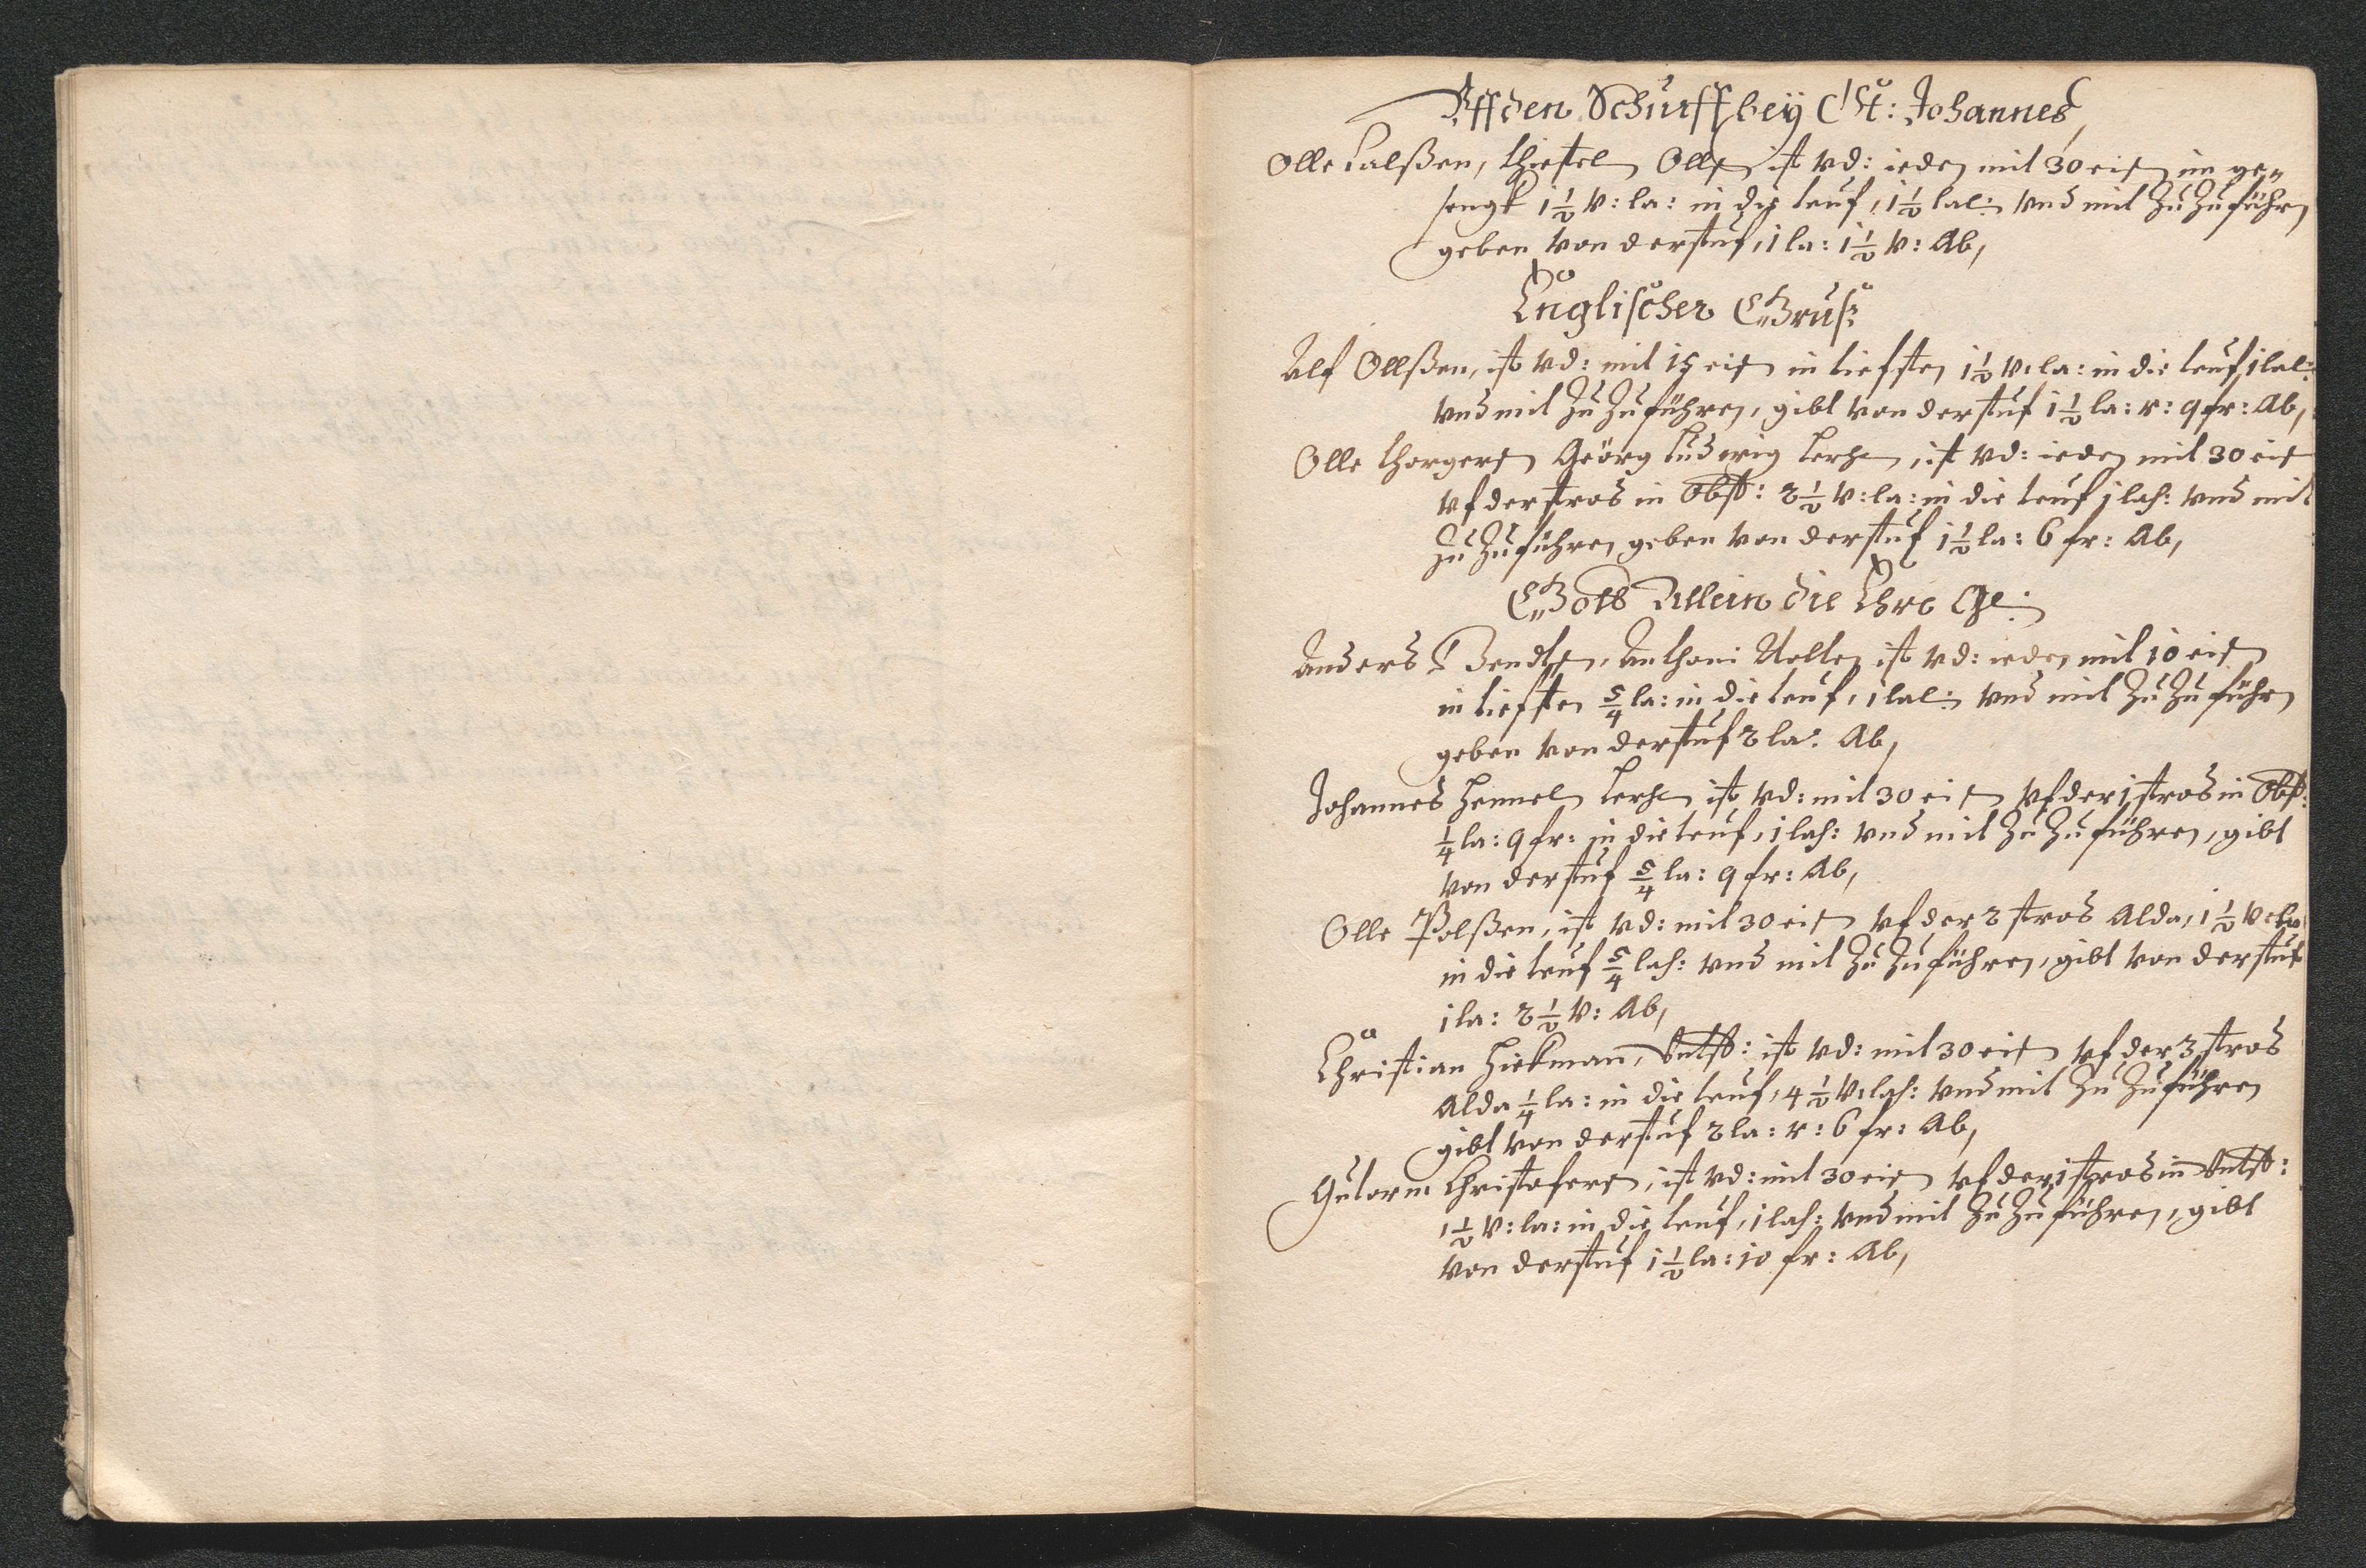 Vff den Schurff bey St: Johannes
Olle Lalßen, Thostel Olleß ist vd: ieder mit 30 eis im ge„
sengk 1 1/2 v: la: in die teuf, 1 1/2 lal: vnd mit Zu Zu führen
geben von der stuf, 1 la: 1 1/2 v: Ab,
Englischer Gruß
Alf Ollßen, ist vd: mit 15 eis in tiefsten 1 1/2 v: la: in die teuf, 1 lal:
vnd mit Zu Zu führen, gibt von der stuf 1 1/2 la: r: 9 fr: Ab,
Olle Thorgers Geörg Ludwig Lerh, ist vd: ieder mit 30 eis
vf der stros in Obst: 2 1/2 v: la: in die teuf 1 lah: vnd mit
Zu Zu führen geben von der stuf 1 1/2 la: 6 fr: Ab,
Gott Allein die Ehre Ge:
Anders Bendts, Anthoni Nolte ist vd: ieder mit 10 eis
in tiefsten 5/4 la: in die teuf, 1 lal: vnd mit Zu Zu führen
geben von der stuf 2 la: Ab,
Johannes Hennel Lerh ist vd: mit 30 eis vf der 1 stros in Obst:
1/4 la: 9 fr: in die teuf, 1 lah: vnd mit Zu Zu führen, gibt
von der stuf 5/4 la: 9 fr: Ab,
Olle Polßen, ist vd: mit 30 eis vf der 2 stros Alda, 1 1/2 v: la:
in die teuf 5/4 lah: vnd mit Zu Zu führen, gibt von der stuf
1 la: 2 1/2 v: Ab,
Christian Hickman, Vntst: ist vd: mit 30 eis vf der 3 stros
Alda 1/4 la: in die teuf, 4 1/2 v: lah: vnd mit Zu Zu führen
gibt von der stuf 2 la: r: 6 fr: Ab,
Gutorm Christofers, ist vd: mit 30 eis vf der 1 stros in Vntst:
1 1/2 v: la: in die teuf, 1 lah: vnd mit Zu Zu führen, gibt
von der stuf 1 1/2 la: 10 fr: Ab,